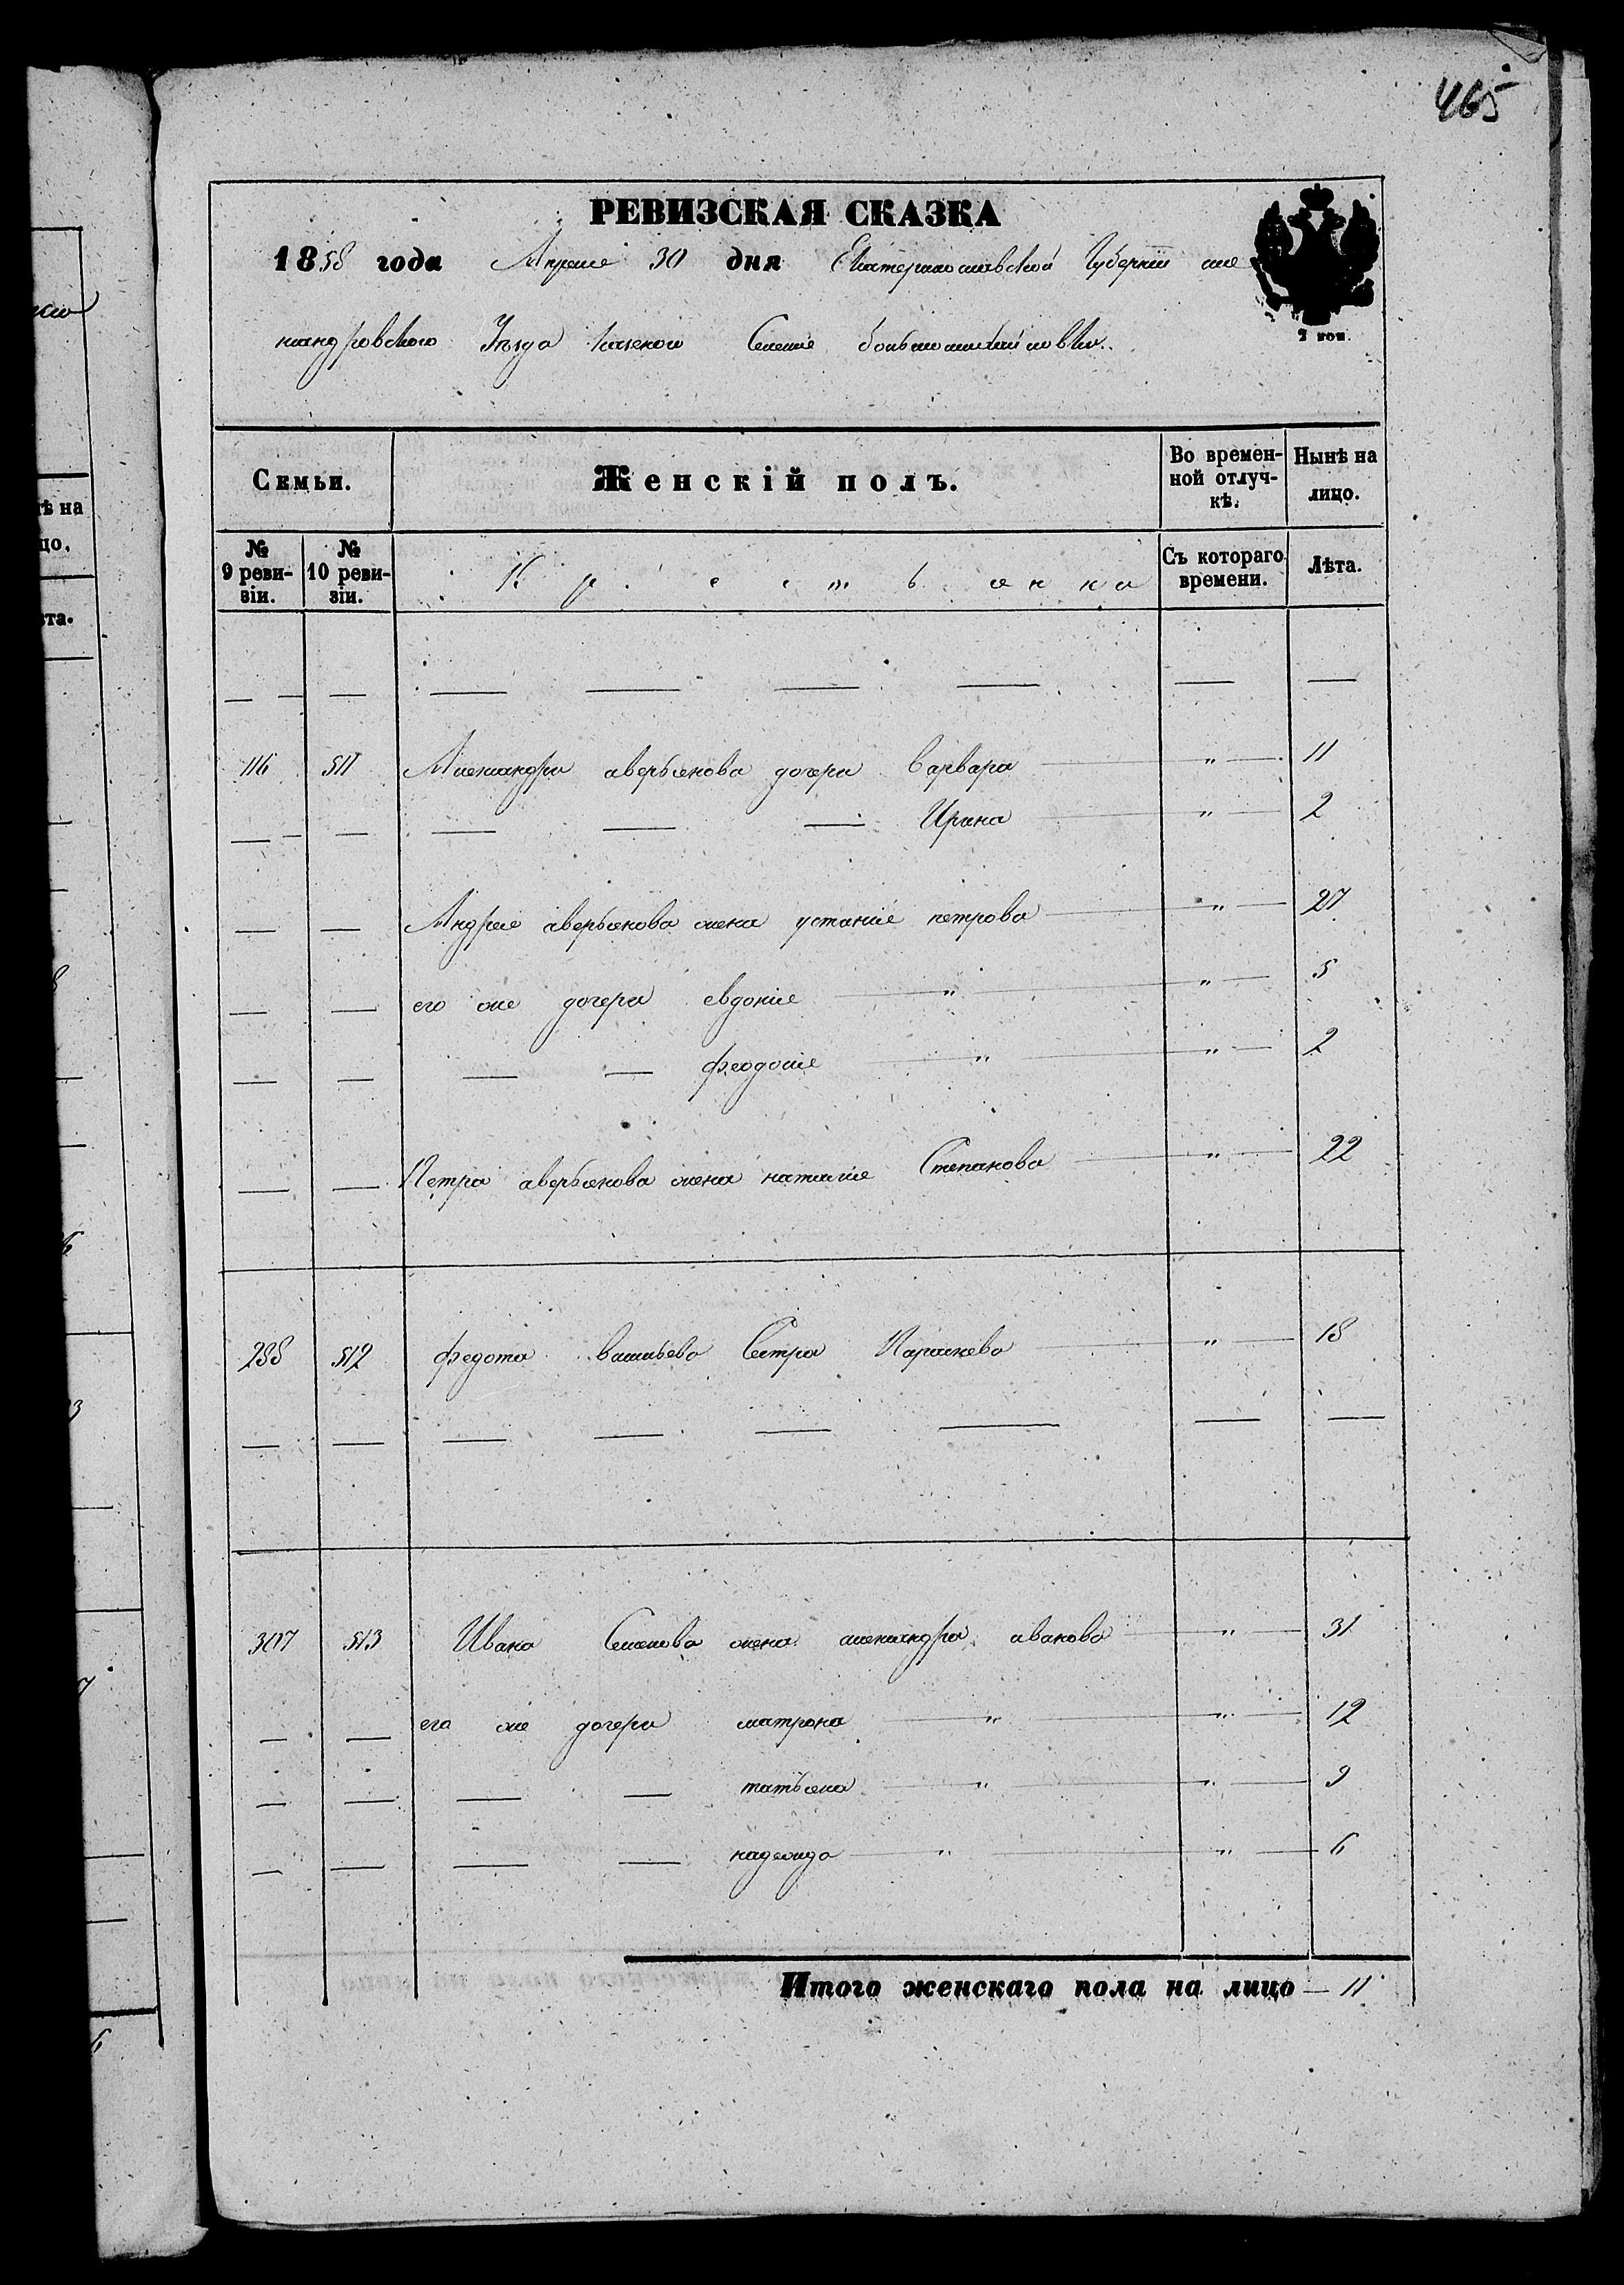 465
РЕВИЗСКАЯ СКАЗКА
1858 года Апреле 30 дня Екатеринославской Губернии але
ксандровского Уезда казеного Селение большомихайловки.
2 коп.
Семьи.
Женскій полъ.
Во времен-
ной отлуч-
кѣ.
Нынѣ на
лицо.
№
9 реви-
зіи.
№
10 реви-
зіи.
К р е с т ь я н к а
Съ котораго
времени.
Лѣта.
116 511 Александра аверьянова дочери Варвара " 11
Ирина " 2
Андрея аверьянова жена устиние петрова " 27
его же дочери евдокие " " 5
феодосие " " 2
Петра аверьянова жена наталие Степанова " 22
288 512 федота васильева Сестра Параскева " 18
307 513 Ивана Семенова жена александра иванова " 31
его же дочери матрона " " 12
татьяна " " 9
надежда " " 6
Итого женскаго пола на лицо — 11
ѣ на
цо.
ѣта.